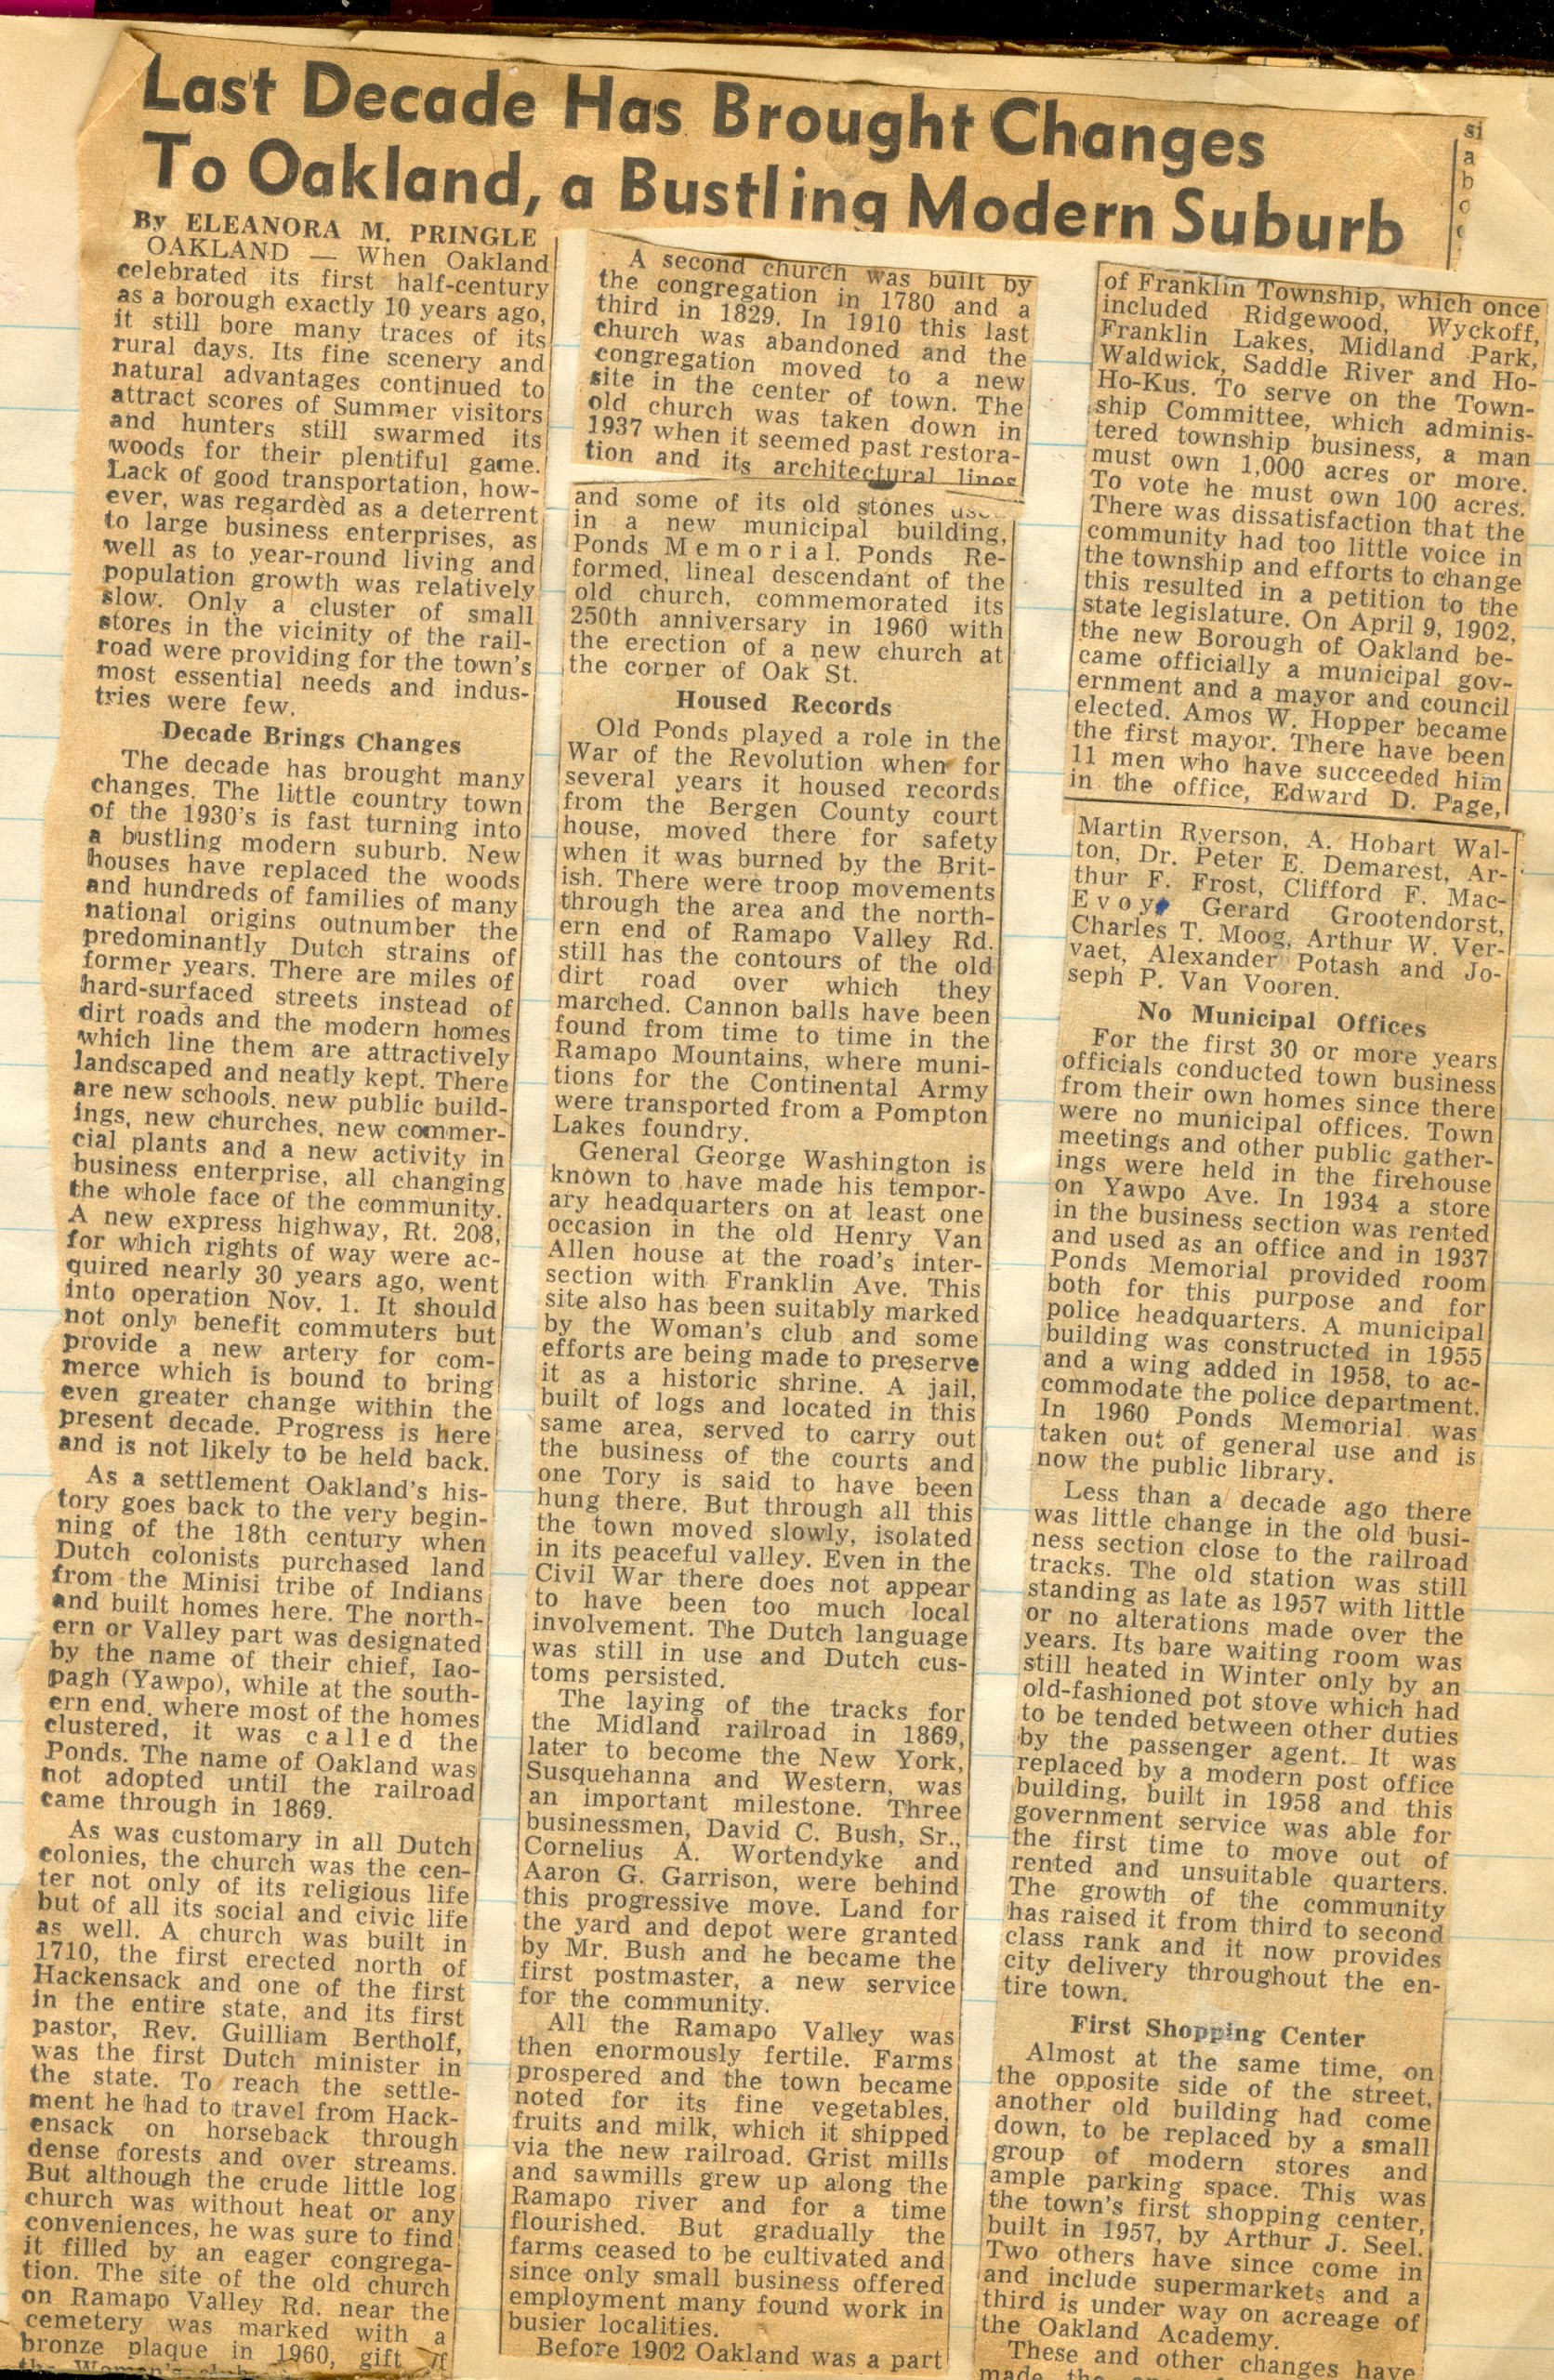 Last Decade Has Brought Changes
To Oakland, a Bustling Modern Suburb
By ELEANORA M. PRINGLE
OAKLAND — When Oakland
celebrated its first half-century
as a borough exactly 10 years ago,
it still bore many traces of its
rural days. Its fine scenery and
natural advantages continued to
attract scores of Summer visitors
and hunters still swarmed its
woods for their plentiful game.
Lack of good transportation, how-
ever, was regarded as a deterrent
to large business enterprises, as
well as to year-round living and
population growth was relatively
slow. Only a cluster of small
stores in the vicinity of the rail-
road were providing for the town's
most essential needs and indus-
tries were few.
Decade Brings Changes
The decade has brought many
changes. The little country town
of the 1930's is fast turning into
a bustling modern suburb. New
houses have replaced the woods
and hundreds of families of many
national origins outnumber the
predominantly Dutch strains of
former years. There are miles of
hard-surfaced streets instead of
dirt roads and the modern homes
which line them are attractively
landscaped and neatly kept. There
are new schools, new public build-
ings, new churches, new commer-
cial plants and a new activity in
business enterprise, all changing
the whole face of the community.
A new express highway, Rt. 208,
for which rights of way were ac-
quired nearly 30 years ago, went
into operation Nov. 1. It should
not only benefit commuters but
provide a new artery for com-
merce which is bound to bring
even greater change within the
present decade. Progress is here
and is not likely to be held back.
As a settlement Oakland's his-
tory goes back to the very begin-
ning of the 18th century when
Dutch colonists purchased land
from the Minisi tribe of Indians
and built homes here. The north-
ern or Valley part was designated
by the name of their chief, Iao-
pagh (Yawpo), while at the south-
ern end, where most of the homes
clustered, it was called the
Ponds. The name of Oakland was
not adopted until the railroad
came through in 1869.
As was customary in all Dutch
colonies, the church was the cen-
ter not only of its religious life
but of all its social and civic life
as well. A church was built in
1710, the first erected north of
Hackensack and one of the first
in the entire state, and its first
pastor, Rev. Guilliam Bertholf,
was the first Dutch minister in
the state. To reach the settle-
ment he had to travel from Hack-
ensack on horseback through
dense forests and over streams.
But although the crude little log
church was without heat or any
conveniences, he was sure to find
it filled by an eager congrega-
tion. The site of the old church
on Ramapo Valley Rd. near the
cemetery was marked with a
bronze plaque in 1960, gift of
the Woman's club
A second church was built by
the congregation in 1780 and a
third in 1829. In 1910 this last
church was abandoned and the
congregation moved to a new
site in the center of town. The
old church was taken down in
1937 when it seemed past restora-
tion and its architectural lines
and some of its old stones
in a new municipal building,
Ponds Memorial. Ponds Re-
formed, lineal descendant of the
old church, commemorated its
250th anniversary in 1960 with
the erection of a new church at
the corner of Oak St.
Housed Records
Old Ponds played a role in the
War of the Revolution when for
several years it housed records
from the Bergen County court
house, moved there for safety
when it was burned by the Brit-
ish. There were troop movements
through the area and the north-
ern end of Ramapo Valley Rd.
still has the contours of the old
dirt road over which they
marched. Cannon balls have been
found from time to time in the
Ramapo Mountains, where muni-
tions for the Continental Army
were transported from a Pompton
Lakes foundry.
General George Washington is
known to have made his tempor-
ary headquarters on at least one
occasion in the old Henry Van
Allen house at the road's inter-
section with Franklin Ave. This
site also has been suitably marked
by the Woman's club and some
efforts are being made to preserve
it as a historic shrine. A jail,
built of logs and located in this
same area, served to carry out
the business of the courts and
one Tory is said to have been
hung there. But through all this
the town moved slowly, isolated
in its peaceful valley. Even in the
Civil War there does not appear
to have been too much local
involvement. The Dutch language
was still in use and Dutch cus-
toms persisted.
The laying of the tracks for
the Midland railroad in 1869,
later to become the New York,
Susquehanna and Western, was
an important milestone. Three
businessmen, David C. Bush, Sr.,
Cornelius A. Wortendyke and
Aaron G. Garrison, were behind
this progressive move. Land for
the yard and depot were granted
by Mr. Bush and he became the
first postmaster, a new service
for the community.
All the Ramapo Valley was
then enormously fertile. Farms
prospered and the town became
noted for its fine vegetables,
fruits and milk, which it shipped
via the new railroad. Grist mills
and sawmills grew up along the
Ramapo river and for a time
flourished. But gradually the
farms ceased to be cultivated and
since only small business offered
employment many found work in
busier localities.
Before 1902 Oakland was a part
of Franklin Township, which once
included Ridgewood, Wyckoff,
Franklin Lakes, Midland Park,
Waldwick, Saddle River and Ho-
Ho-Kus. To serve on the Town-
ship Committee, which adminis-
tered township business, a man
must own 1,000 acres or more.
To vote he must own 100 acres.
There was dissatisfaction that the
community had too little voice in
the township and efforts to change
this resulted in a petition to the
state legislature. On April 9, 1902,
the new Borough of Oakland be-
came officially a municipal gov-
ernment and a mayor and council
elected. Amos W. Hopper became
the first mayor. There have been
11 men who have succeeded him
in the office, Edward D. Page,
Martin Ryerson, A. Hobart Wal-
ton, Dr. Peter E. Demarest, Ar-
thur F. Frost, Clifford F. Mac-
Evoy, Gerard Grootendorst,
Charles T. Moog, Arthur W. Ver-
vaet, Alexander Potash and Jo-
seph P. Van Vooren.
No Municipal Offices
For the first 30 or more years
officials conducted town business
from their own homes since there
were no municipal offices. Town
meetings and other public gather-
ings were held in the firehouse
on Yawpo Ave. In 1934 a store
in the business section was rented
and used as an office and in 1937
Ponds Memorial provided room
both for this purpose and for
police headquarters. A municipal
building was constructed in 1955
and a wing added in 1958, to ac-
commodate the police department.
In 1960 Ponds Memorial was
taken out of general use and is
now the public library.
Less than a decade ago there
was little change in the old busi-
ness section close to the railroad
tracks. The old station was still
standing as late as 1957 with little
or no alterations made over the
years. Its bare waiting room was
still heated in Winter only by an
old-fashioned pot stove which had
to be tended between other duties
by the passenger agent. It was
replaced by a modern post office
building, built in 1958 and this
government service was able for
the first time to move out of
rented and unsuitable quarters.
The growth of the community
has raised it from third to second
class rank and it now provides
city delivery throughout the en-
tire town.
First Shopping Center
Almost at the same time, on
the opposite side of the street,
another old building had come
down, to be replaced by a small
group of modern stores and
ample parking space. This was
the town's first shopping center,
built in 1957, by Arthur J. Seel.
Two others have since come in
and include supermarkets and a
third is under way on acreage of
the Oakland Academy.
These and other changes have
made the